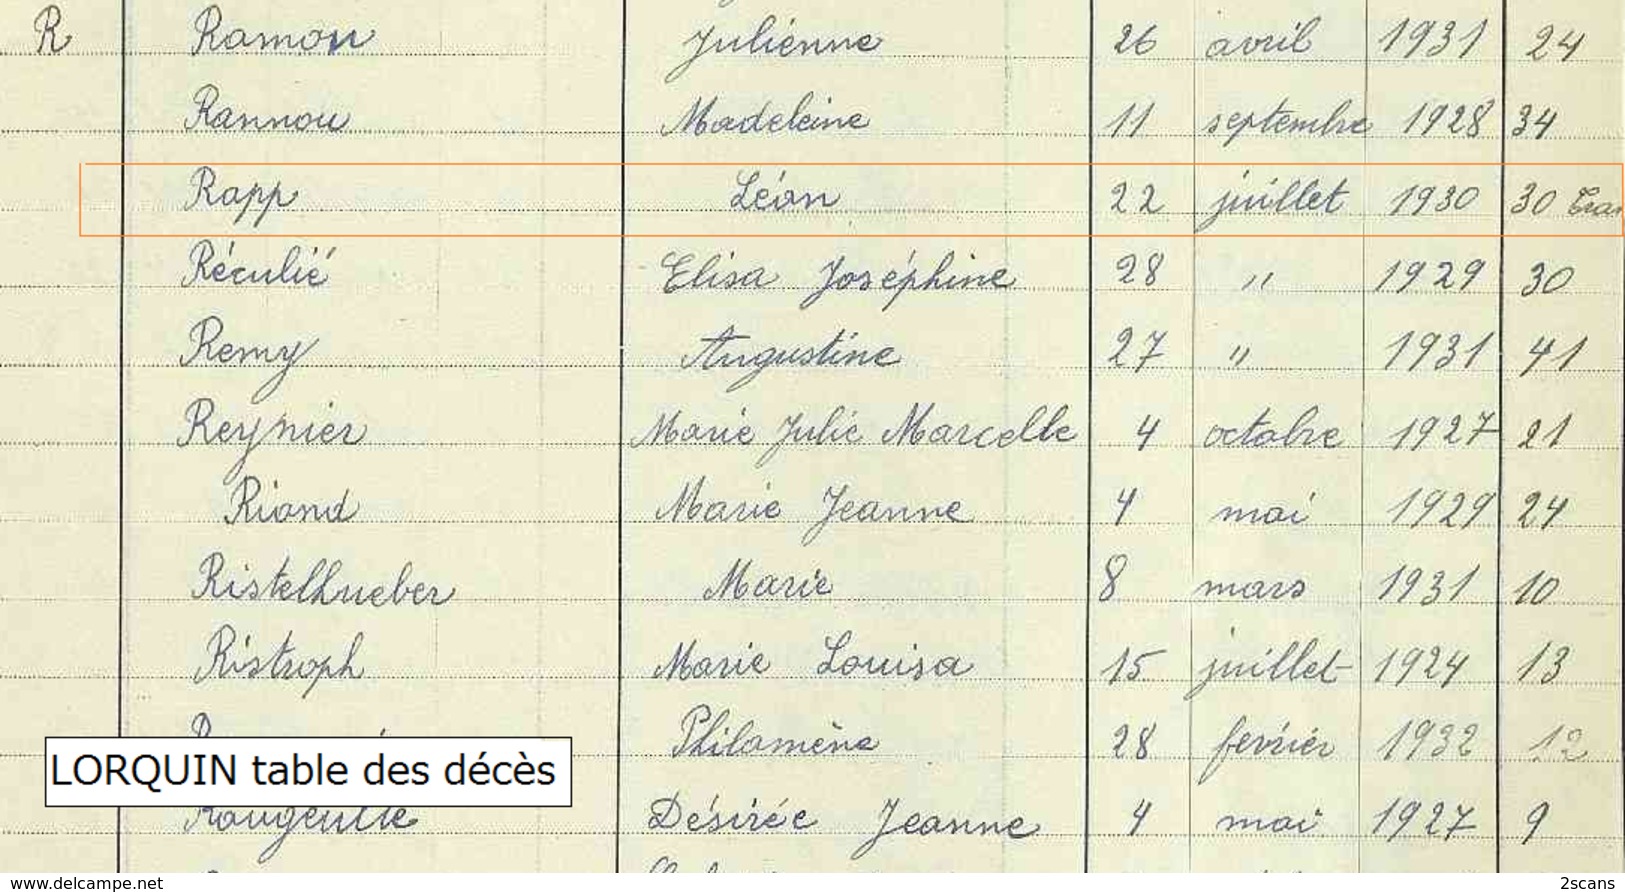 R Ramon Julienne 26 avril 1931 24
Rannou Madeleine 11 septembre 1928 34
Rapp Léon 22 juillet 1930 30
Réculié Elisa Joséphine 28 " 1929 30
Remy Augustine 27 " 1931 41
Reynier Marie Julie Marcelle 4 octobre 1927 21
Riond Marie Jeanne 4 mai 1929 24
Ristelhueber Marie 8 mars 1931 10
Ristroph Marie Louisa 15 juillet 1924 13
Philomène 28 fevrier 1932 12
LORQUIN table des décès
Désirée Jeanne 4 mai 1927 9
www.delcampe.net
2scans